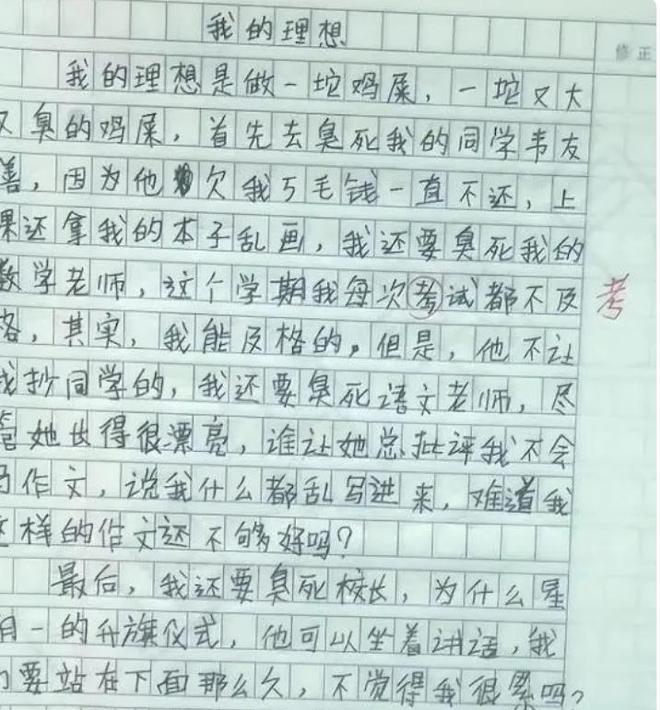 我的理想
修正
我的理想是做一坨鸡屎，一坨又大
又臭的鸡屎，首先去臭死我的同学韦友
善，因为他欠我5毛钱一直不还，上
课还拿我的本子乱画，我还要臭死我的
数学老师，这个学期我每次考试都不及
考
格，其实，我能及格的，但是，他不让
我抄同学的，我还要臭死语文老师，尽
管她长得很漂亮，谁让她总批评我不会
写作文，说我什么都乱写进来，难道我
这样的作文还不够好吗？
最后，我还要臭死校长，为什么星
期一的升旗仪式，他可以坐着讲话，我
们要站在下面那么久，不觉得我很累吗？